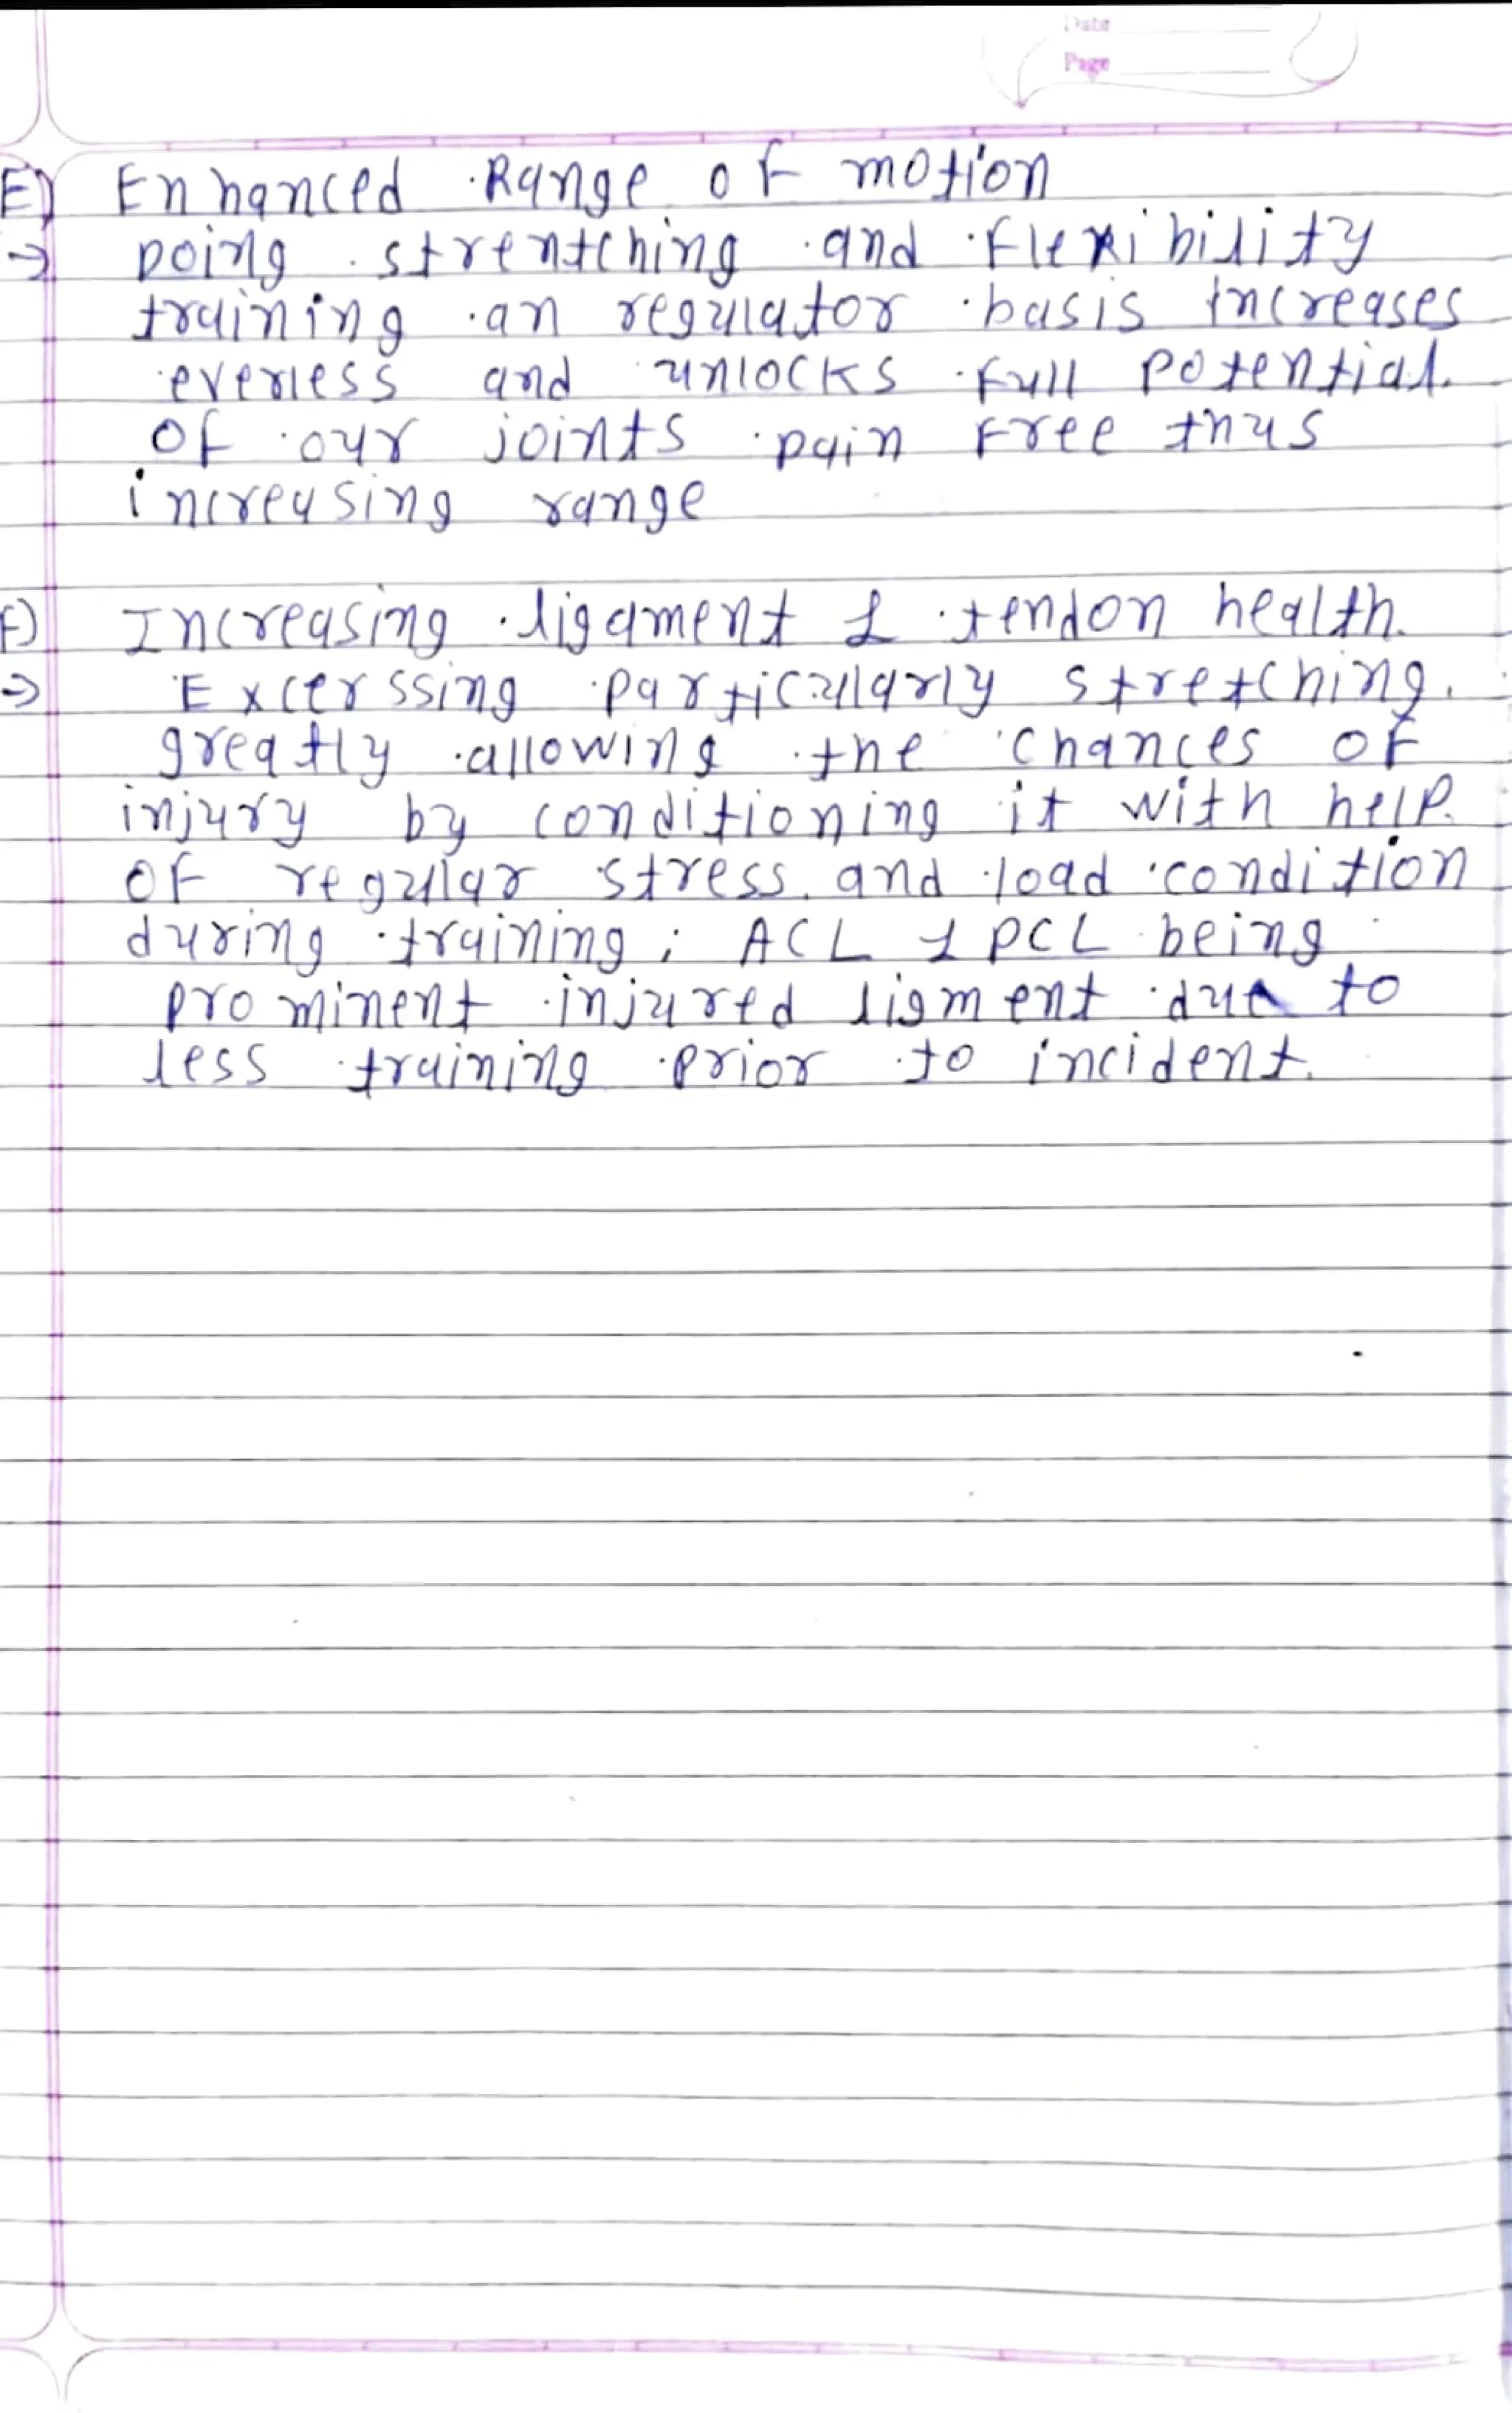 Date
Page
E) Enhanced Range of motion
→ Doing strentching and flexibility
training an regulator basis increases
everless and unlocks full potential.
of our joints pain free thus
increasing range
F) Increasing ligament & tendon health.
⇒ Excerssing particularly stretching.
greatly allowing the chances of
injury by conditioning it with help.
of regular stress. and load condition
during training; ACL & PCL being
prominent injured ligment due to
less training prior to incident.